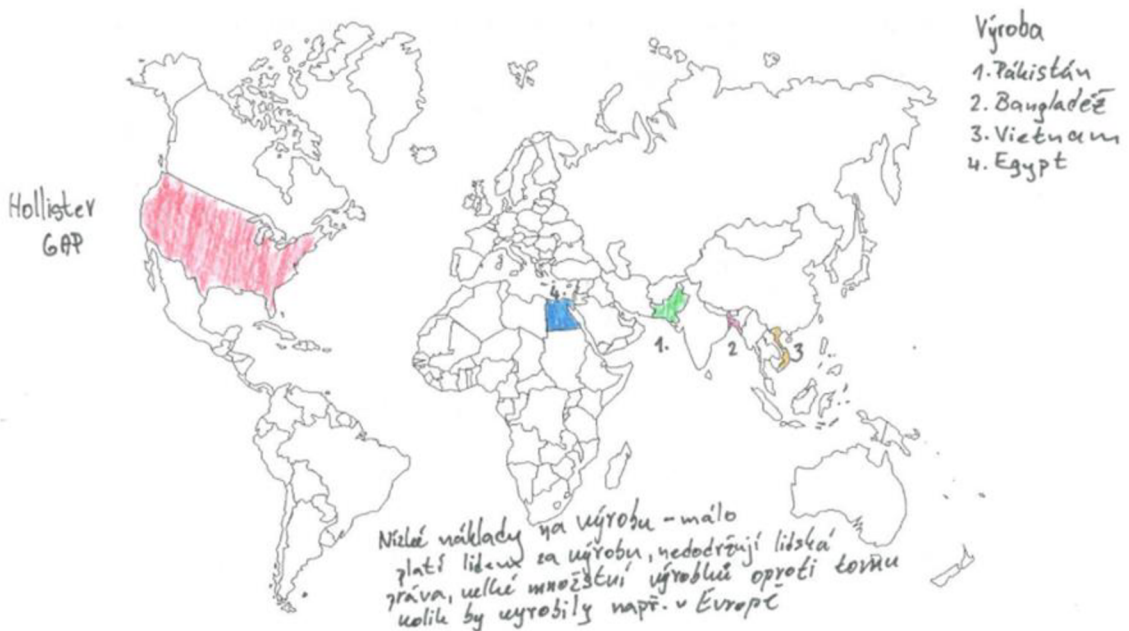 Výroba
1. Pákistán
2. Bangladéž
3. Vietnam
4. Egypt
Hollister
GAP
4.
1.
2
3
Nízké náklady na výrobu - málo
platí lidem za výrobu, nedodržují lidská
práva, velké množství výrobků oproti tomu
kolik by vyrobily např. v Evropě